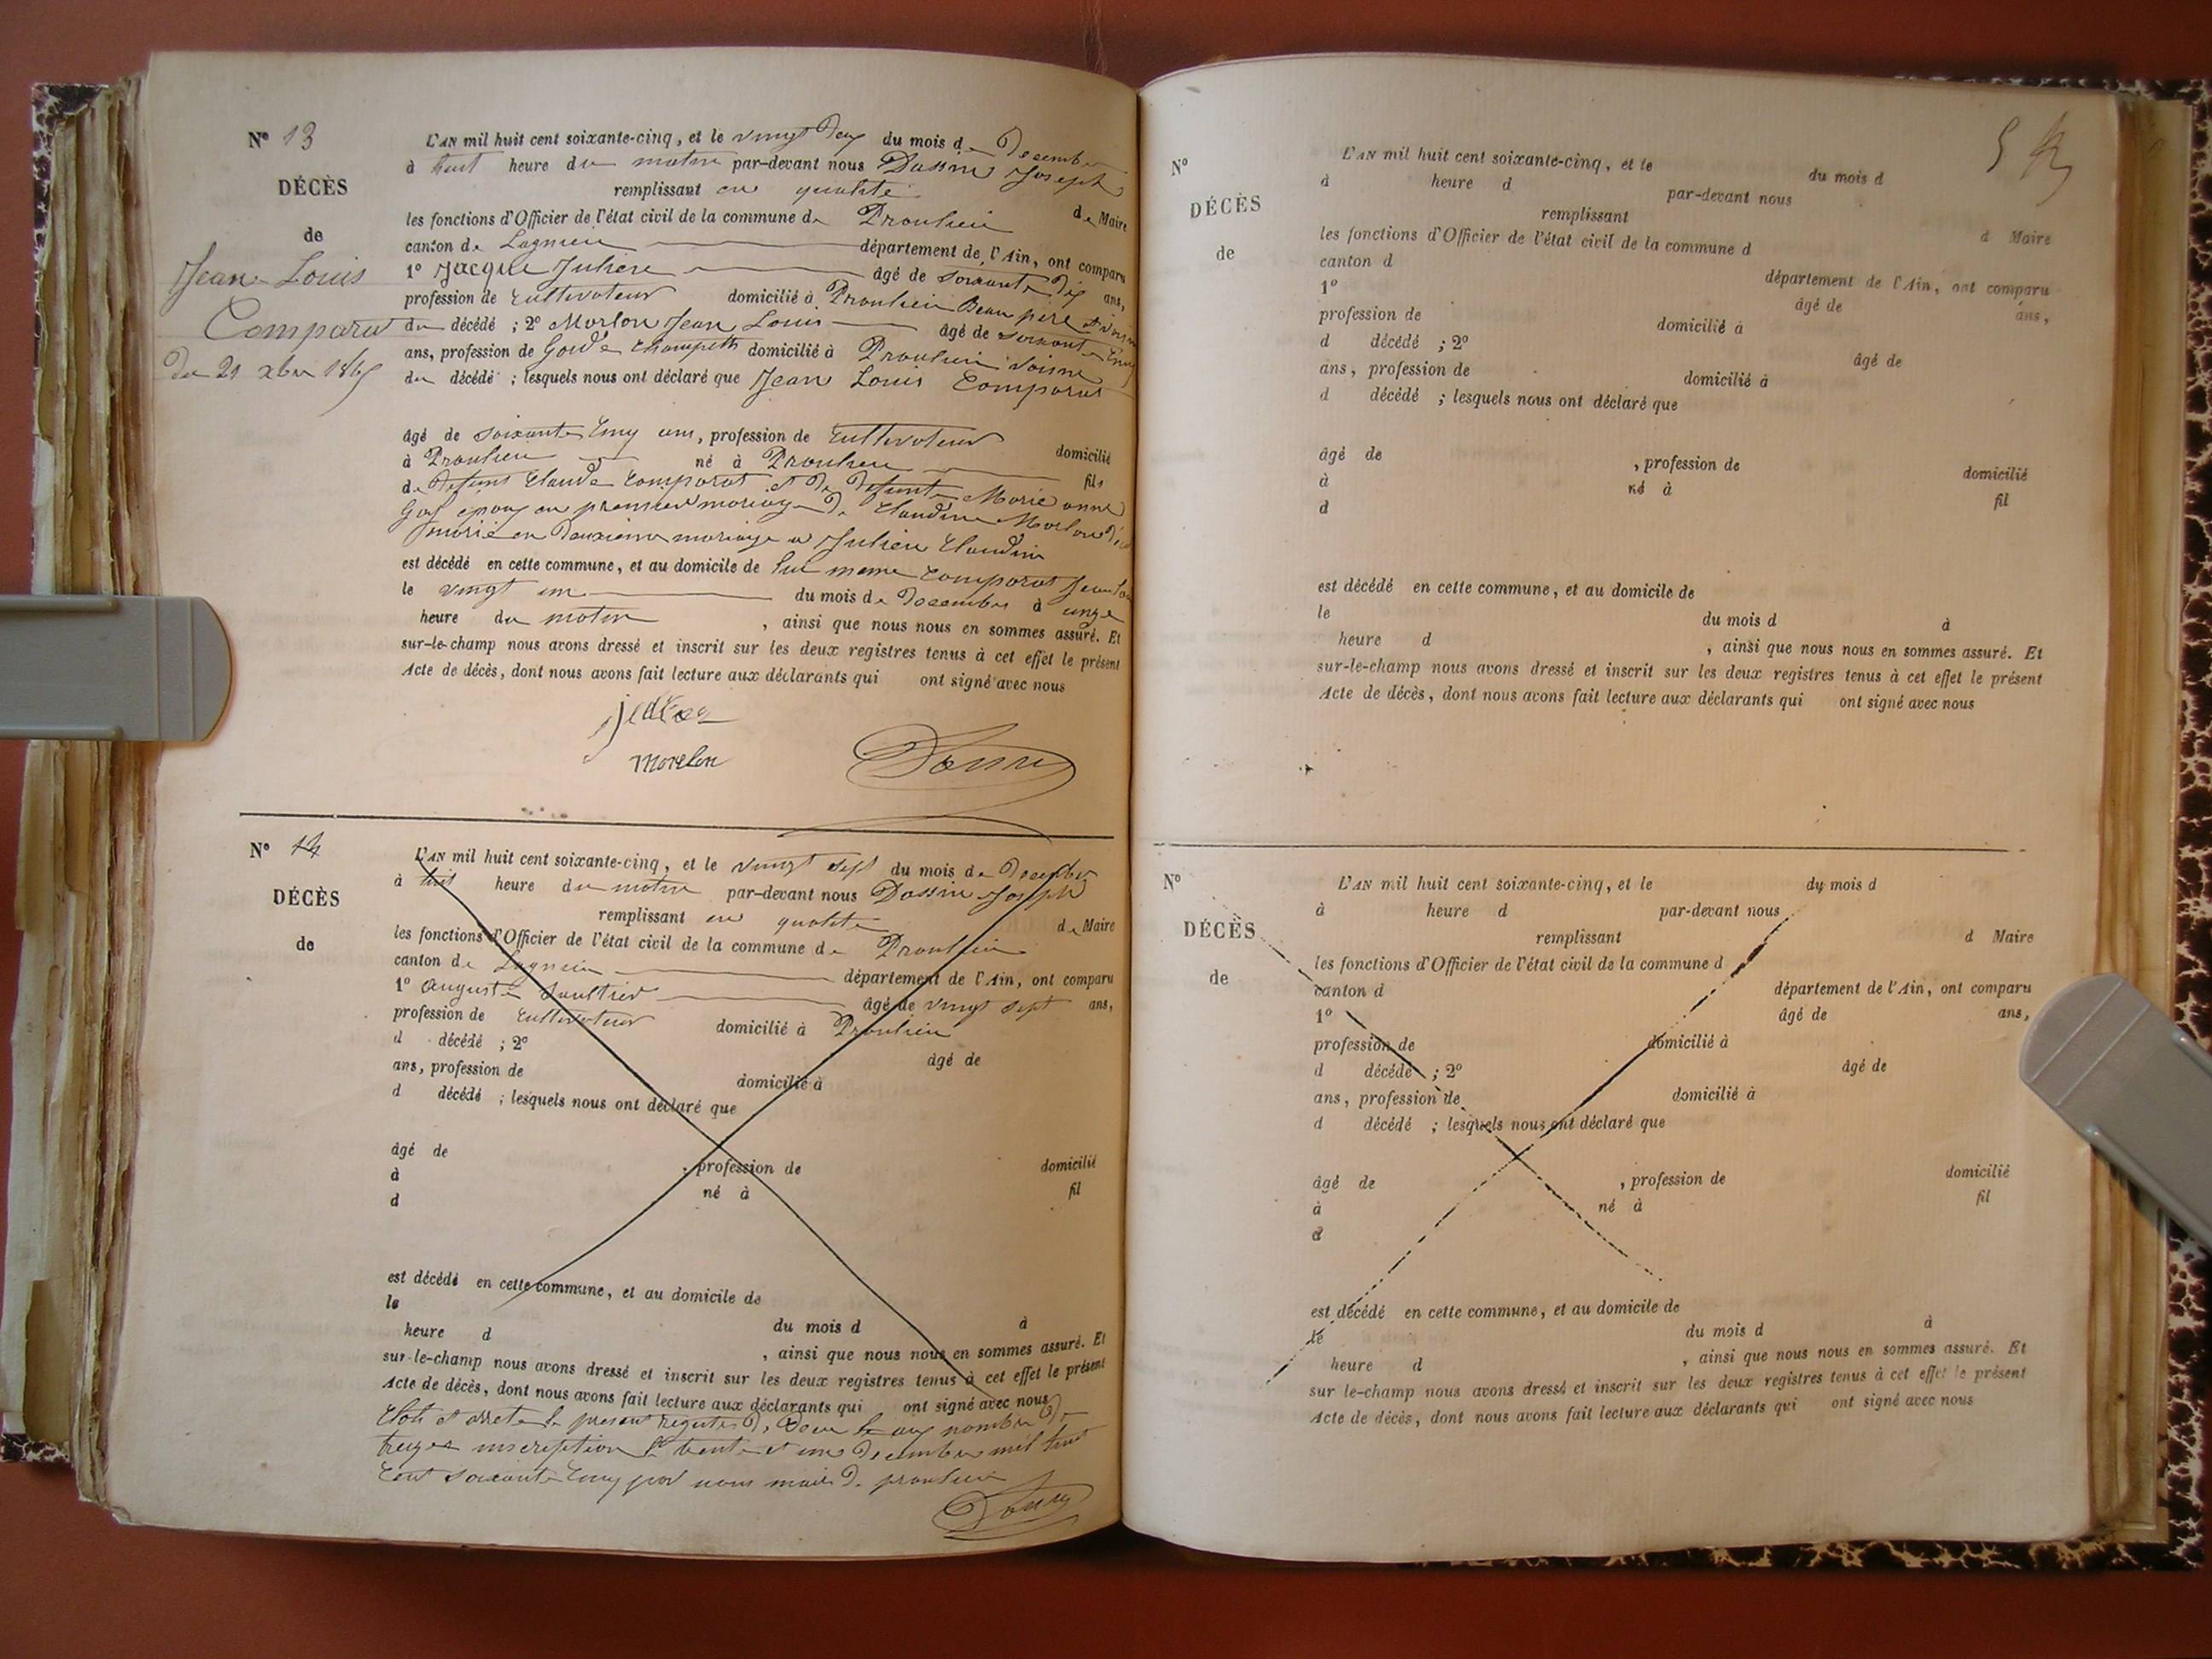 N° 13
DÉCÈS
de
Jean Louis
Comparat
du 21 xbre 1865
L'AN mil huit cent soixante-cinq, et le vingt deux du mois de Décembre
à huit heure du matin par-devant nous Dassin Joseph
remplissant en qualité de Maire
les fonctions d'Officier de l'état civil de la commune de Proulieu
canton de Lagnieu département de l'Ain, ont comparu
1° Jacque Juliere âgé de soixante dix ans,
profession de Cultivateur domicilié à Proulieu Beau père et voisin
du décédé ; 2° Morlon Jean Louis âgé de soixante cinq
ans, profession de Garde Champetre domicilié à Proulieu voisin
du décédé ; lesquels nous ont déclaré que Jean Louis Comparat
âgé de soixante cinq ans, profession de Cultivateur domicilié
à Proulieu né à Proulieu fils
de defunt Claude Comparat et de defunte Marie anne
époux en premier mariage de Claudine Morlon
marié en deuxieme mariage a Julien Claudine
est décédé en cette commune, et au domicile de lui meme Comparat Jean Lou
le vingt un du mois de Decembre à onze
heure du matin , ainsi que nous nous en sommes assuré. Et
sur-le-champ nous avons dressé et inscrit sur les deux registres tenus à cet effet le présent
Acte de décès, dont nous avons fait lecture aux déclarants qui ont signé avec nous
morelon
Dassin
N° 14
DÉCÈS
de
L'AN mil huit cent soixante-cinq, et le vingt sept du mois de Decembre
à huit heure du matin par-devant nous Dassin Joseph
remplissant en qualité de Maire
les fonctions d'Officier de l'état civil de la commune de Proulieu
canton de Lagnieu département de l'Ain, ont comparu
1° Auguste Saultier âgé de vingt sept ans,
profession de Cultivateur domicilié à Proulieu
d décédé ; 2° âgé de
ans, profession de domicilié à
d décédé ; lesquels nous ont déclaré que
âgé de , profession de domicilié
à né à fil
d
est décédé en cette commune, et au domicile de
le du mois d à
heure d , ainsi que nous nous en sommes assuré. Et
sur-le-champ nous avons dressé et inscrit sur les deux registres tenus à cet effet le présent
Acte de décès, dont nous avons fait lecture aux déclarants qui ont signé avec nous
Clos et arreté le present registre de au nombre de
treize inscription le trente et un Decembre mil huit
Cent soixante Cinq par nous maire de proulieu
Dassin
N°
DÉCÈS
de
L'AN mil huit cent soixante-cinq, et le du mois d
à heure d par-devant nous
remplissant d Maire
les fonctions d'Officier de l'état civil de la commune d
canton d département de l'Ain, ont comparu
1° âgé de ans,
profession de domicilié à
d décédé ; 2° âgé de
ans, profession de domicilié à
d décédé ; lesquels nous ont déclaré que
âgé de , profession de domicilié
à né à fil
d
est décédé en cette commune, et au domicile de
le du mois d à
heure d , ainsi que nous nous en sommes assuré. Et
sur-le-champ nous avons dressé et inscrit sur les deux registres tenus à cet effet le présent
Acte de décès, dont nous avons fait lecture aux déclarants qui ont signé avec nous
N°
DÉCÈS
de
L'AN mil huit cent soixante-cinq, et le du mois d
à heure d par-devant nous
remplissant d Maire
les fonctions d'Officier de l'état civil de la commune d
canton d département de l'Ain, ont comparu
1° âgé de ans,
profession de domicilié à
d décédé ; 2° âgé de
ans, profession de domicilié à
d décédé ; lesquels nous ont déclaré que
âgé de , profession de domicilié
à né à fil
d
est décédé en cette commune, et au domicile de
le du mois d à
heure d , ainsi que nous nous en sommes assuré. Et
sur le-champ nous avons dressé et inscrit sur les deux registres tenus à cet effet le présent
Acte de décès, dont nous avons fait lecture aux déclarants qui ont signé avec nous